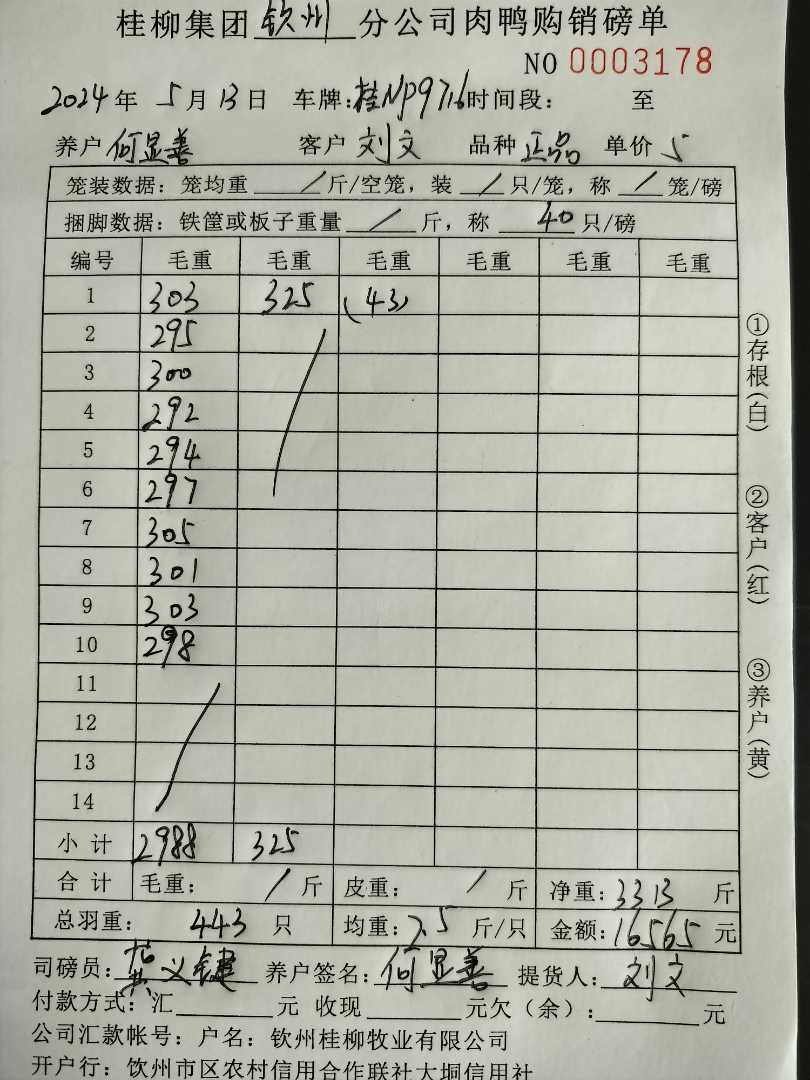 桂柳集团钦州分公司肉鸭购销磅单
NO 0003178
2024年5月13日 车牌:桂NP9716时间段: 至
养户 何显善 客户 刘文 品种 正品 单价 5
笼装数据:笼均重 / 斤/空笼,装 / 只/笼,称 / 笼/磅
捆脚数据:铁筐或板子重量 / 斤,称 40 只/磅
编号 毛重 毛重 毛重 毛重 毛重 毛重
1 303 325 (43)
2 295
3 300
4 292
5 294
6 297
7 305
8 301
9 303
10 298
11
12
13
14
小计 2988 325
合计 毛重: / 斤 皮重: / 斤 净重:3313 斤
总羽重: 443 只 均重:7.5 斤/只 金额:16565 元
司磅员:黄义键 养户签名:何显善 提货人:刘文
付款方式:汇 元 收现 元欠(余): 元
公司汇款帐号:户名:钦州桂柳牧业有限公司
开户行:钦州市区农村信用合作联社大垌信用社
①存根(白)
②客户(红)
③养户(黄)